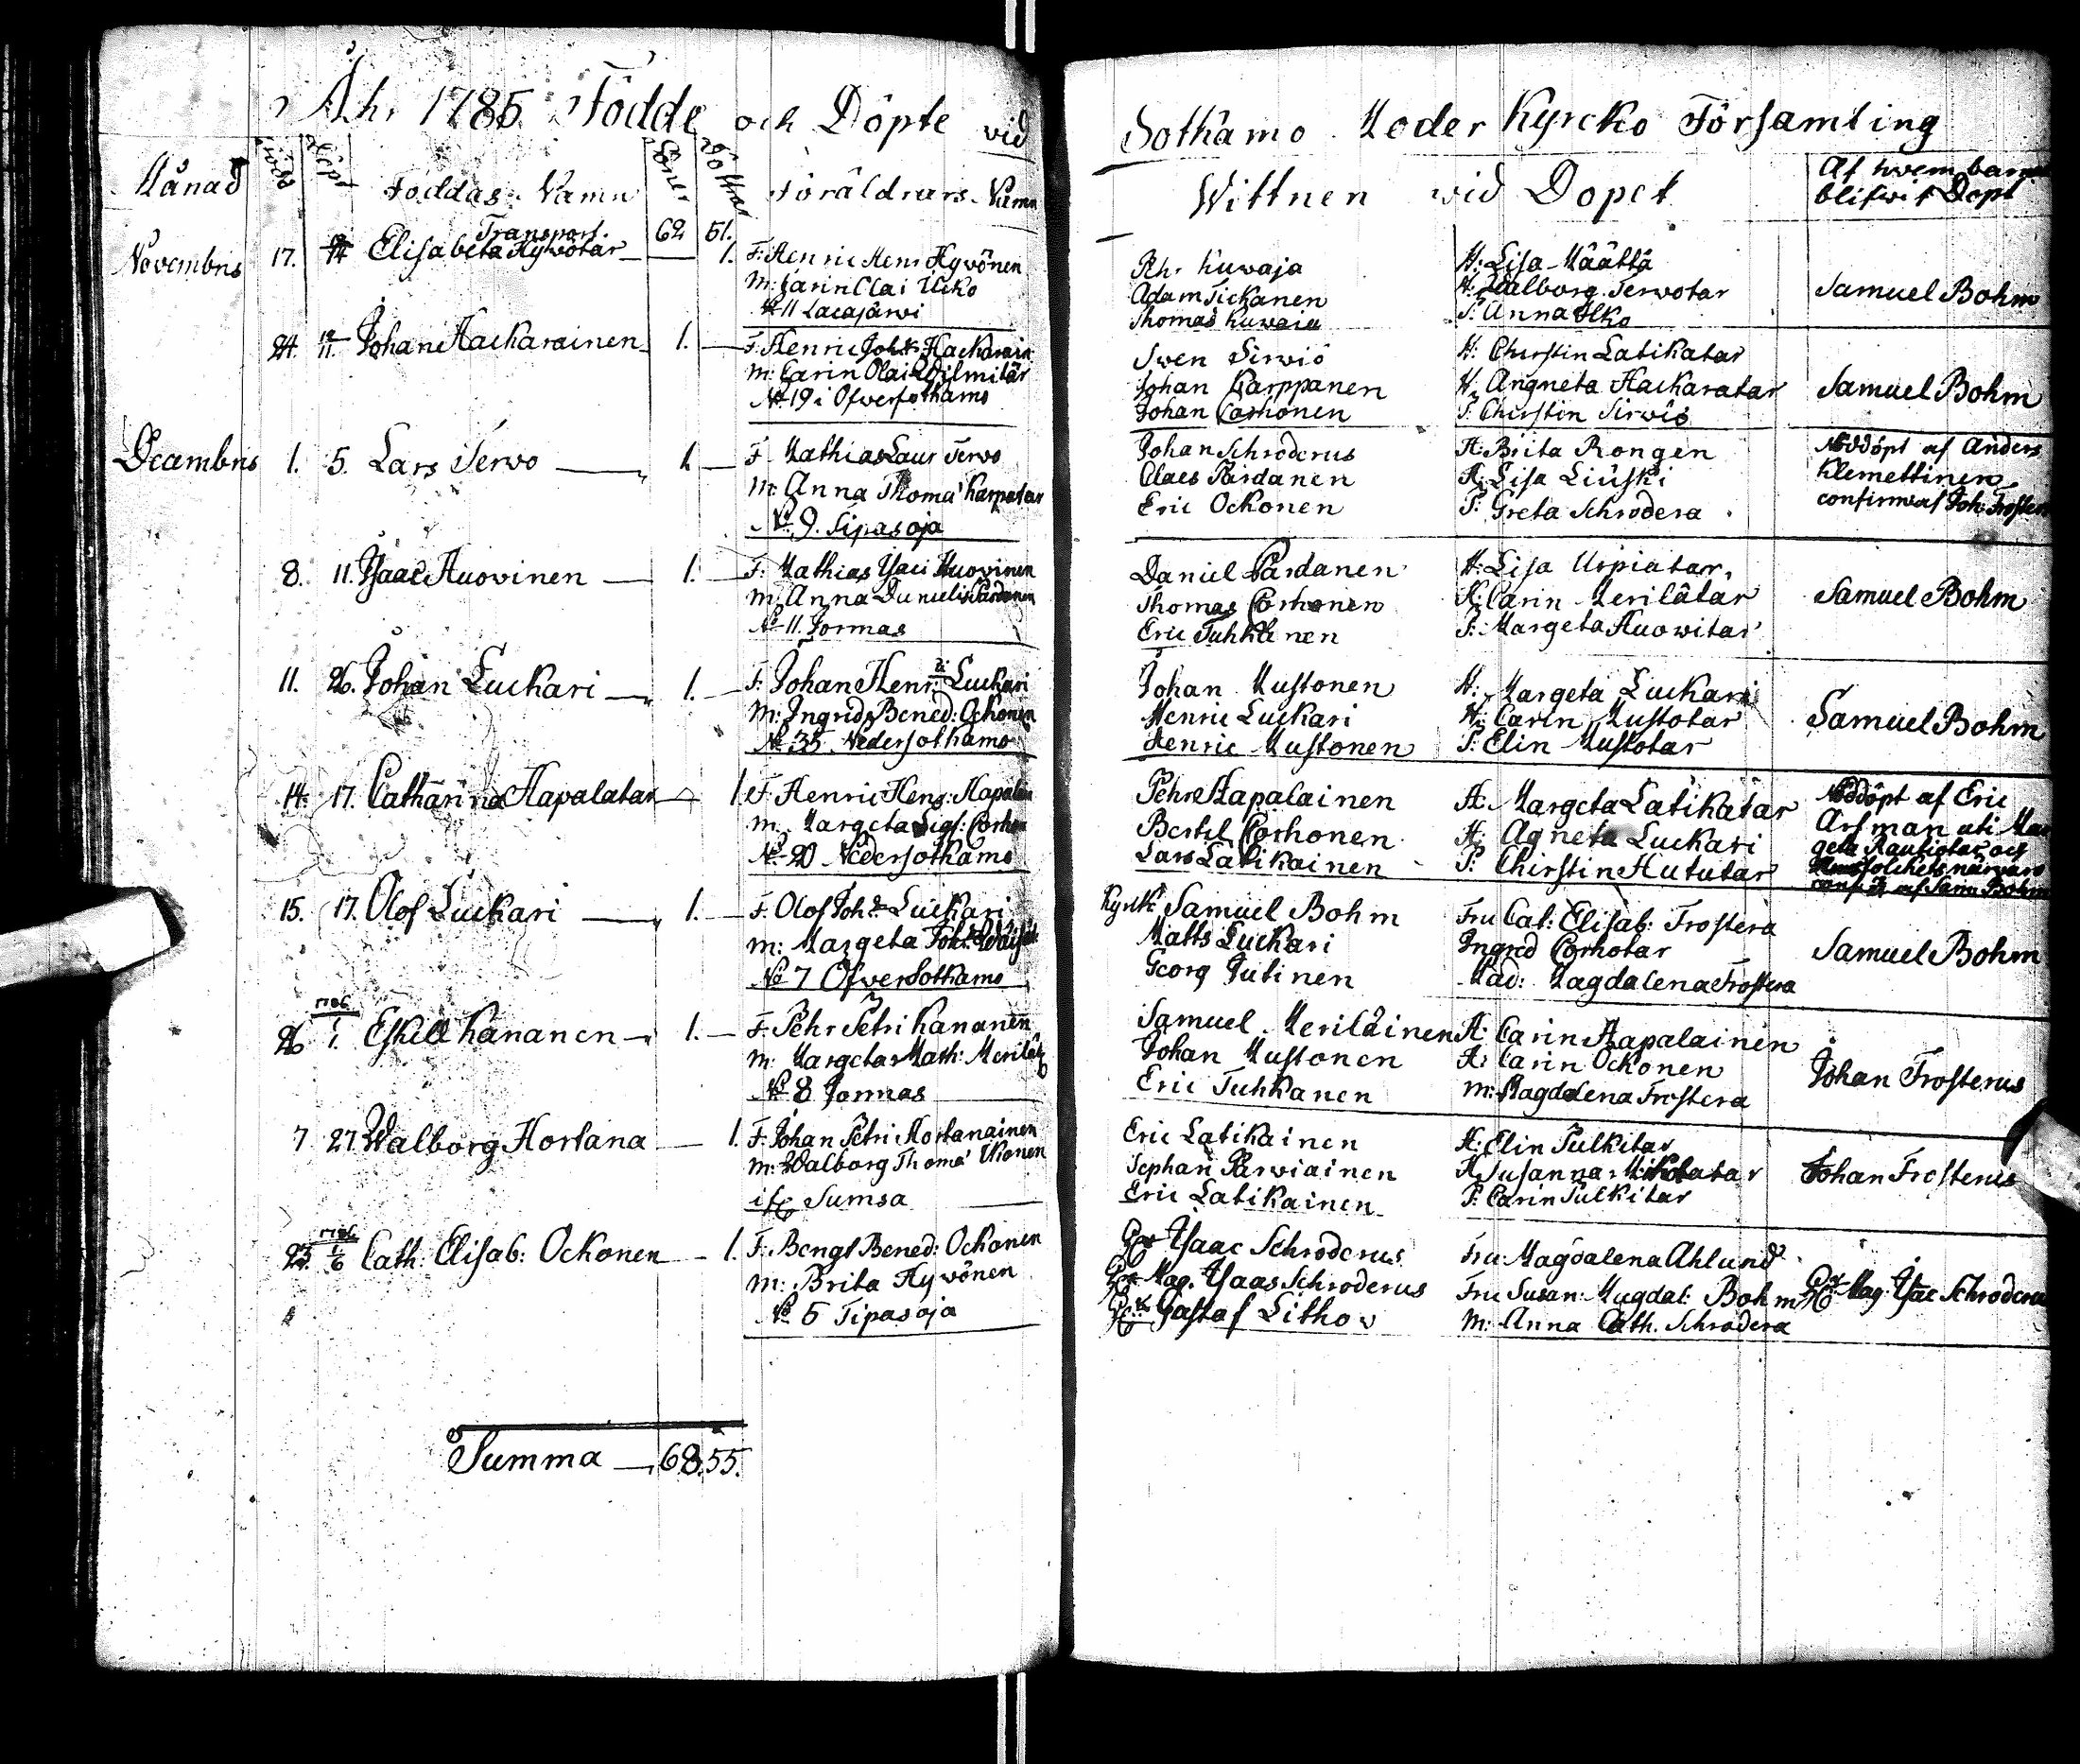 Åhr 1785 Födde och Döpte vid
Månad Född Döpt Föddas Namn Söner Döttrar Föräldrars Namn
Transport. 62 51.
Novembris 17. Elisabeta Hywötar 1. F: Henric Henr Hywönen
M: Carin Olai Ulko
No 11
24. 12/11. Johan Hackarainen 1. F: Henric Joh: Hackarain:
M: Carin Olai Wilmilär
No 19 i Öfwersothamo
Decembris 1. 5. Lars Terwo 1. F Mathias Laur Terwo
M: Anna Thomæ Karpatar
No 9. Tipasoja
8. 11. Isaac Huovinen 1. F: Mathias Isaci Huovinen
M: Anna Danielis Pardanen
No 11. Jormas
11. 26. Johan Luckari 1. F: Johan Henr: Luckari
M: Ingrid Bened: Ockonen
No 35. Nedersothamo
14. 17. Catharina Hapalatar 1. F Henric Henr: Hapalai
M: Margeta Sigf: Corho
No 20 Nedersothamo
15. 17. Olof Luckari 1. F. Olof Joh: Luckari
M: Margeta Joh:
No 7 Öfwersothamo
26 1786 1/1. Eskell Kananen 1. F: Pehr Petri Kananen
M: Margeta Math: Merilät
No 8 Jormas
7 27 Walborg Hortana 1. F. Johan Petri Hortanainen
M: Walborg Thomæ
Sumsa
23. 1786 1/6 Cath: Elisab: Ockonen 1. F: Bengt Bened: Ockonen
M: Brita Hywönen
No 5 Tipasoja
Summa 68. 55.
Sothamo Moder Kyrcko Församling
Wittnen vid Dopet Af hvem barnet
blifwit Döpt
Phr Kuwaja H: Lisa Määttä
Adam Tickanen H: Walborg Terwotar Samuel Bohm
Thomas Kuwaja P: Anna Ulko
Swen Sirwiö H: Chirstin Latikatar
Johan Karppanen H: Angneta Hackaratar Samuel Bohm
Johan Corhonen P: Chirstin Sirwiö
Johan Schroderus H: Brita Rongen Nöddöpt af Anders
Claes Pardanen H: Lisa Liuski Klemettinen
Eric Ockonen P: Greta Schrodera confirm: af Joh: Froster
Daniel Pardanen H: Lisa Urpiatar
Thomas Corhonen H: Carin Merilätar Samuel Bohm
Eric Tuhkanen P: Margeta Huowitar
Johan Mustonen H: Margeta Luckari
Henric Luckari H: Carin Mustotar Samuel Bohm
Henric Mustonen P: Elin Mustotar
Pehr Hapalainen H: Margeta Latikatar Nöddöpt af Eric
Bertil Corhonen H: Agneta Luckari Arfman uti Mar
Lars Latikainen P: Chirstin Hututar geta Rautiotar och
närvaro
conf: af Sam: Bohm
Kyrckh Samuel Bohm Fru Cat: Elisab: Frostera
Matts Luckari Ingrid Corhotar Samuel Bohm
Georg Jutinen Mad: Magdalena Frostera
Samuel Meriläinen H: Carin Hapalainen
Johan Mustonen H: Carin Ockonen Johan Frosterus
Eric Tuhkanen M: Magdalena Frostera
Eric Latikainen H: Elin Pulkitar
Sephan Parwiainen H Susanna Johan Frosterus
Eric Latikainen P: Carin Pulkitar
Isaac Schroderus Fru Magdalena Ahlund
Mag. Isaac Schroderus Fru Susan: Magdal: Bohm Mag. Isac Schroderus
Gustaf Lithov M: Anna Cath. Schrodera